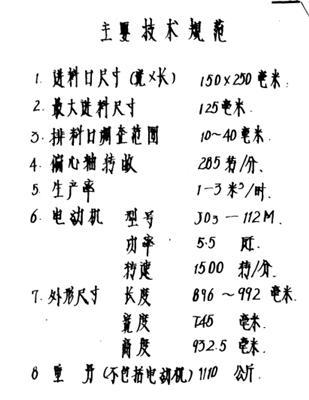 主要技术规范
1. 进料口尺寸(宽×长) 150×250毫米.
2. 最大进料尺寸 125毫米.
3. 排料口调查范围 10~40毫米.
4. 偏心轴转数 285转/分.
5. 生产率 1-3米³/时.
6. 电动机 型号 JO3-112M
功率 5.5
转速 1500 转/分.
7. 外形尺寸 长度 896~992毫米.
宽度 745 毫米.
高度 932.5 毫米.
8 重 (不包括电动机) 1110 公斤.